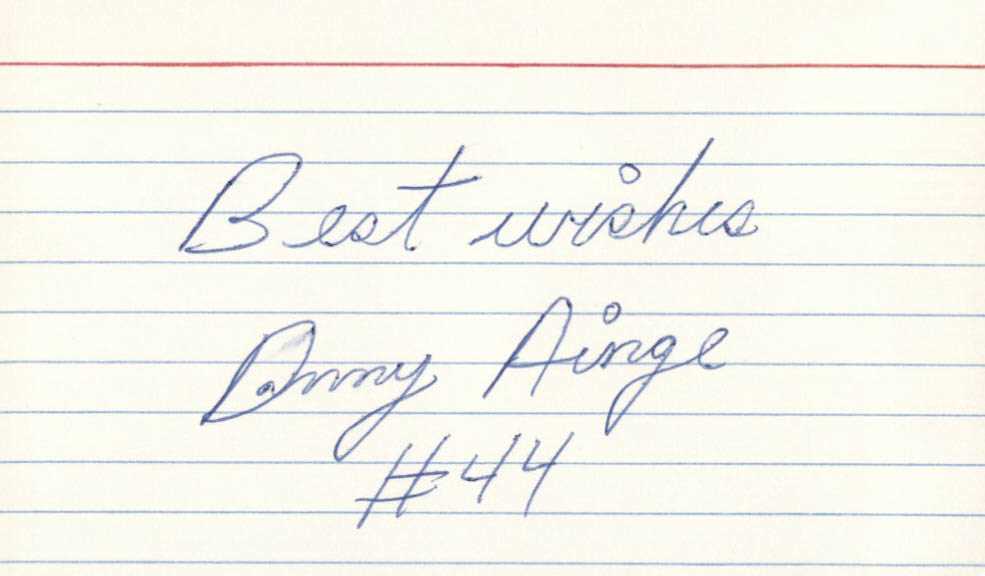 Best wishes
Danny Ainge
#44